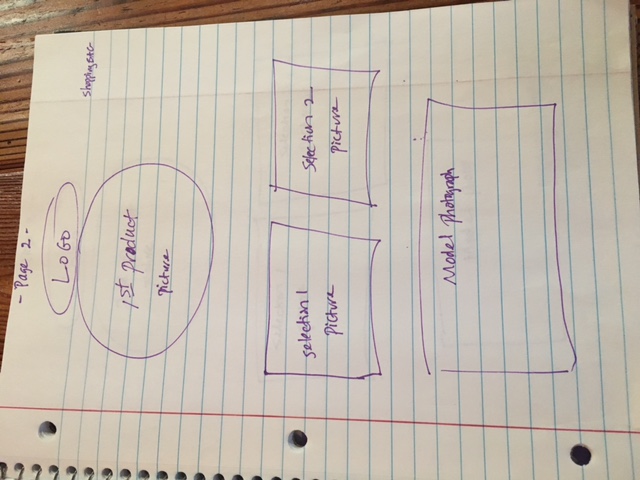 - Page 2 -
LOGO
Shopping BAG
1st product
picture
Selection 1
picture
Selection 2
picture
Model photograph